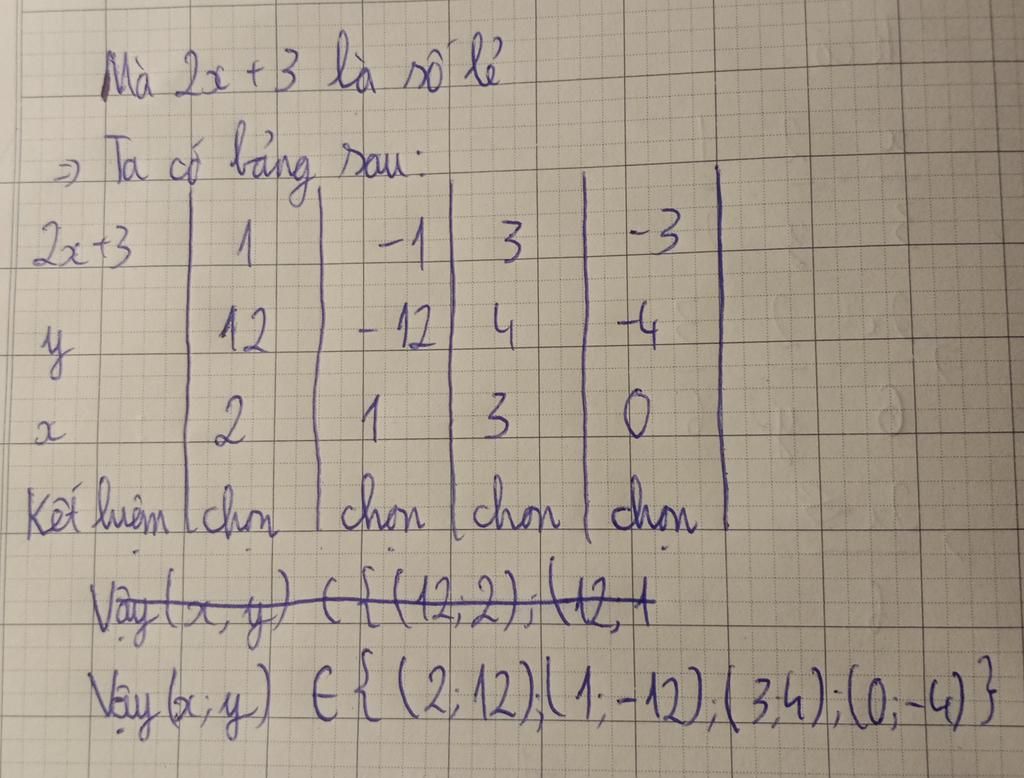 Mà 2x + 3 là số lẻ
⇒ Ta có bảng sau:
2x+3 | 1 | -1 | 3 | -3 |
y | 12 | -12 | 4 | -4 |
x | 2 | 1 | 3 | 0 |
Kết luận | chọn | chọn | chọn | chọn |
Vậy (x; y) ∈ {(12; 2); (12; 1
Vậy (x; y) ∈ {(2; 12); (1; -12); (3; 4); (0; -4)}